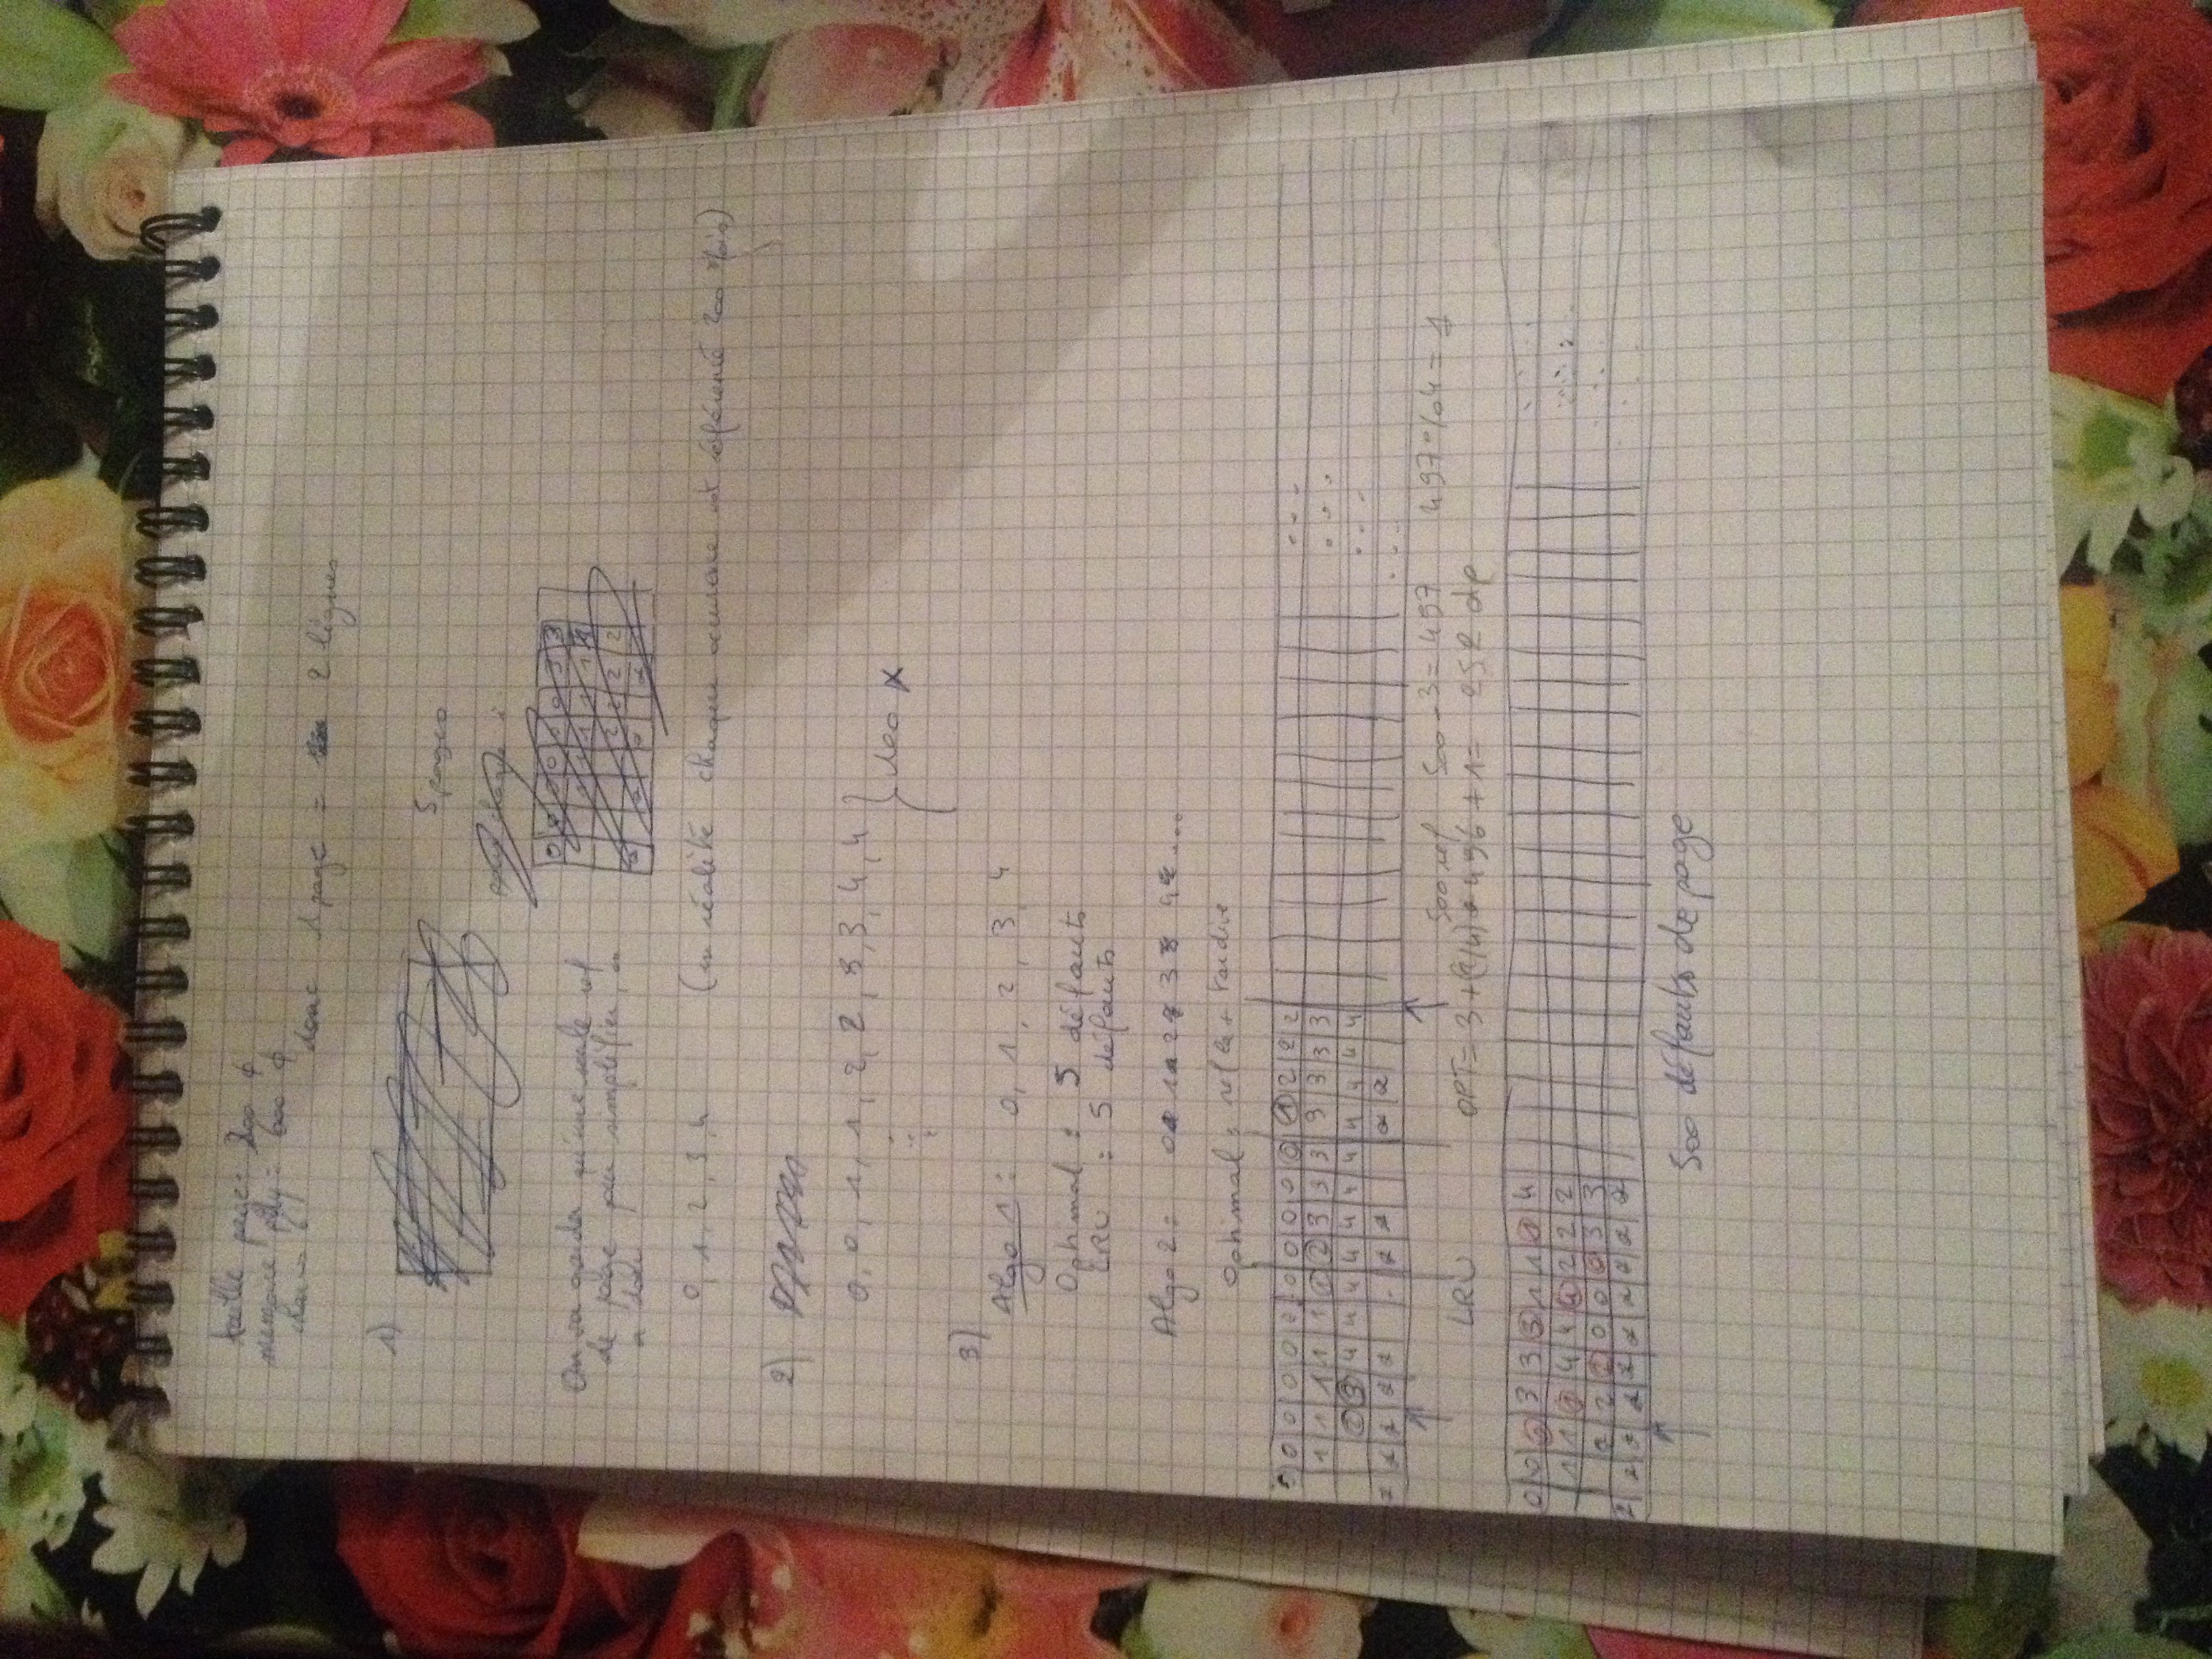 taille page = 200 ¢
memoire phy = 600 ¢
donc 1 page = 2 lignes
1)
5 pages
pour chaque i
0 0 0 0 0 0 3 3
1 1 1 1 1
2 2 2 2
On va garder qu'une seule ref
de page pour simplifier, on
a donc
0, 1, 2, 3, 4 (en réalité chaque occurence est référencé 200 fois)
2)
0, 0, 1, 1, 2, 2, 3, 3, 4, 4 } 100 x
3)
Algo 1 : 0, 1, 2, 3, 4
Optimal : 5 défauts
LRU : 5 défauts
Algo 2 : 0 1 2 3 4 ...
Optimal : ref la + tardive
0 0 0 0 0 0 0 0 0 0 0 1 2 2 2 ...
1 1 1 1 1 1 2 3 3 3 3 3 3 3 ...
2 3 4 4 4 4 4 4 4 4 4 4 4 ...
x x x x x x x x x ...
500 ref 500 - 3 = 497 497 % 4 = 1
LRU OPT = 3 + (2/4) * 496 + 1 = 252 dp
0 0 0 3 3 3 1 1 1 4
1 1 1 4 4 4 2 2 2
2 2 2 0 0 0 3 3
x x x x x x x x x x
500 défauts de page